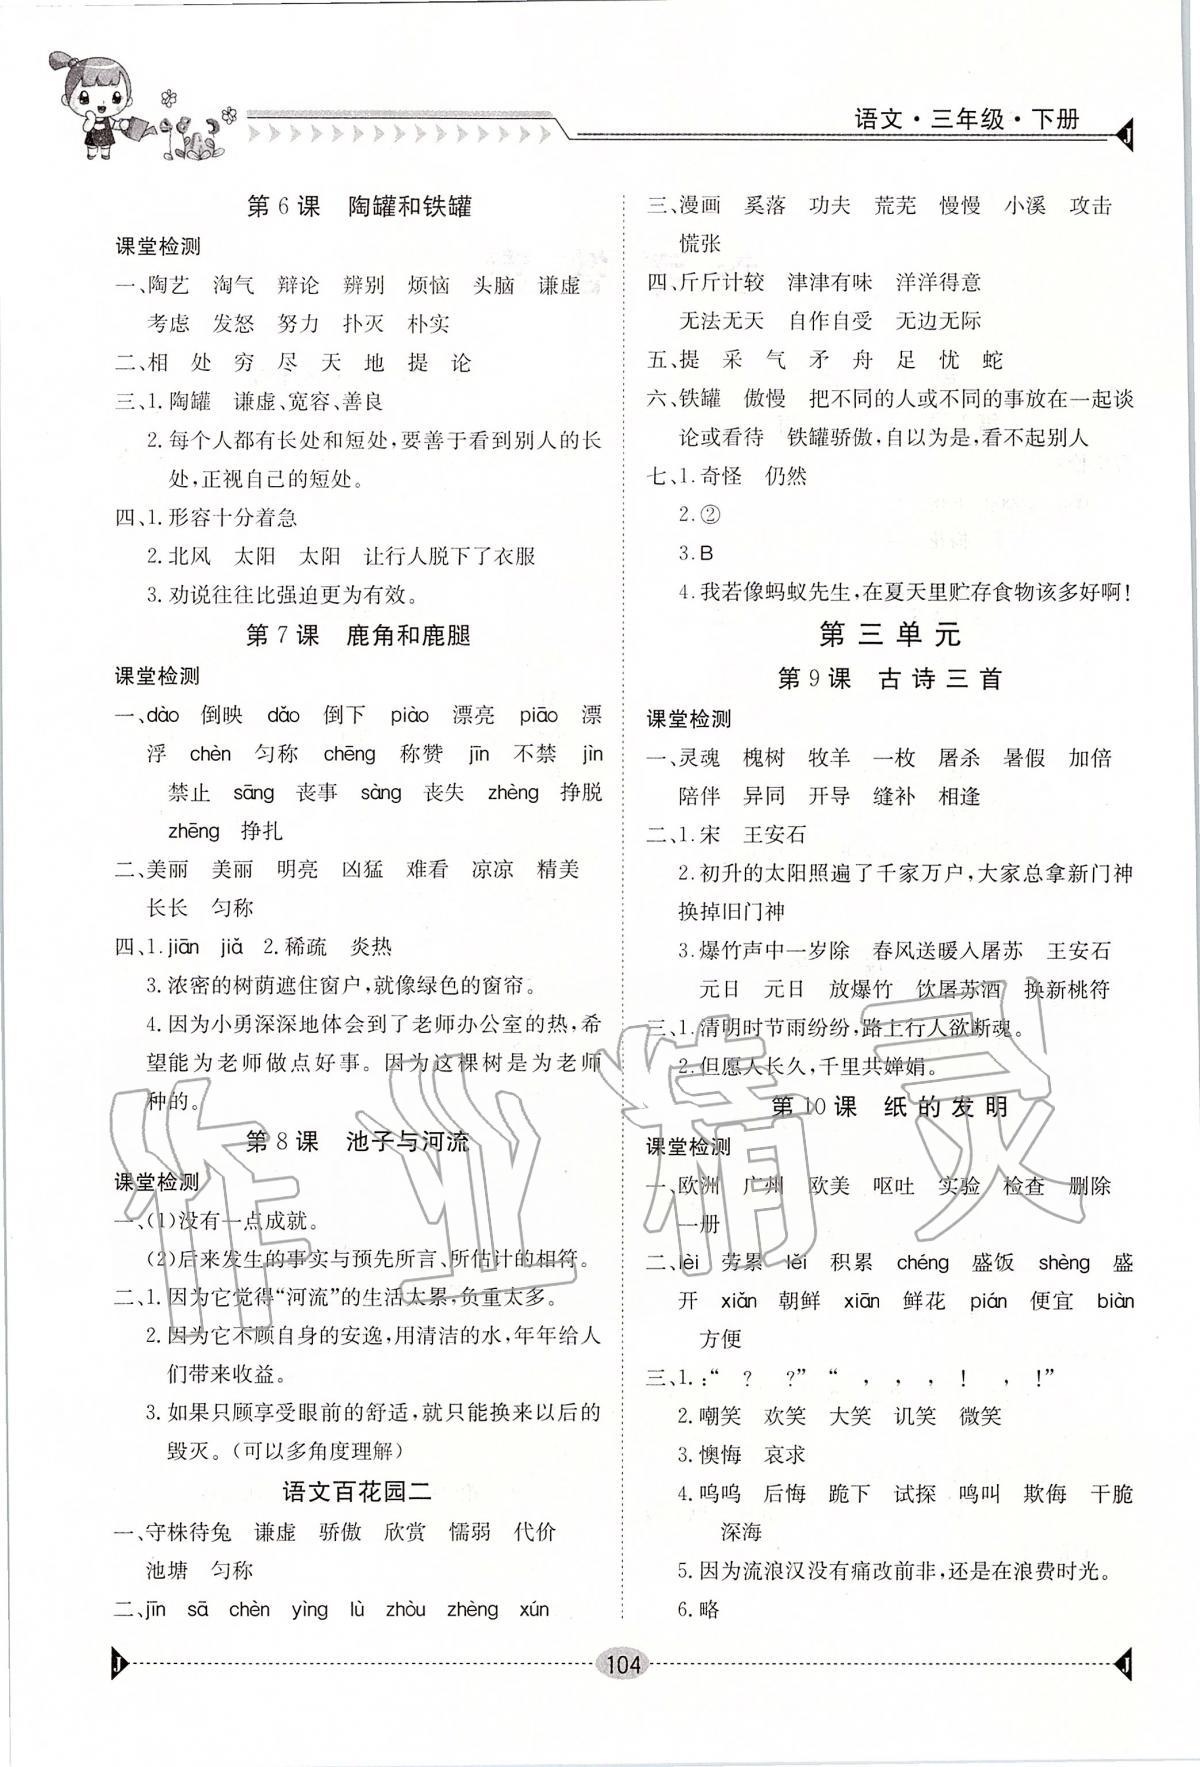 语文·三年级·下册
第6课 陶罐和铁罐
课堂检测
一、陶艺 淘气 辩论 辨别 烦恼 头脑 谦虚
考虑 发怒 努力 扑灭 朴实
二、相 处 穷 尽 天 地 提 论
三、1.陶罐 谦虚、宽容、善良
2.每个人都有长处和短处,要善于看到别人的长
处,正视自己的短处。
四、1.形容十分着急
2.北风 太阳 太阳 让行人脱下了衣服
3.劝说往往比强迫更为有效。
第7课 鹿角和鹿腿
课堂检测
一、dào 倒映 dǎo 倒下 piào 漂亮 piāo 漂
浮 chèn 匀称 chēng 称赞 jīn 不禁 jìn
禁止 sāng 丧事 sàng 丧失 zhèng 挣脱
zhēng 挣扎
二、美丽 美丽 明亮 凶猛 难看 凉凉 精美
长长 匀称
四、1.jiān jiǎ 2.稀疏 炎热
3.浓密的树荫遮住窗户,就像绿色的窗帘。
4.因为小勇深深地体会到了老师办公室的热,希
望能为老师做点好事。因为这棵树是为老师
种的。
第8课 池子与河流
课堂检测
一、(1)没有一点成就。
(2)后来发生的事实与预先所言、所估计的相符。
二、1.因为它觉得“河流”的生活太累,负重太多。
2.因为它不顾自身的安逸,用清洁的水,年年给人
们带来收益。
3.如果只顾享受眼前的舒适,就只能换来以后的
毁灭。(可以多角度理解)
语文百花园二
一、守株待兔 谦虚 骄傲 欣赏 懦弱 代价
池塘 匀称
二、jīn sā chèn yìng lù zhòu zhèng xún
三、漫画 奚落 功夫 荒芜 慢慢 小溪 攻击
慌张
四、斤斤计较 津津有味 洋洋得意
无法无天 自作自受 无边无际
五、提 采 气 矛 舟 足 忧 蛇
六、铁罐 傲慢 把不同的人或不同的事放在一起谈
论或看待 铁罐骄傲,自以为是,看不起别人
七、1.奇怪 仍然
2.②
3.B
4.我若像蚂蚁先生,在夏天里贮存食物该多好啊!
第三单元
第9课 古诗三首
课堂检测
一、灵魂 槐树 牧羊 一枚 屠杀 暑假 加倍
陪伴 异同 开导 缝补 相逢
二、1.宋 王安石
2.初升的太阳照遍了千家万户,大家总拿新门神
换掉旧门神
3.爆竹声中一岁除 春风送暖入屠苏 王安石
元日 元日 放爆竹 饮屠苏酒 换新桃符
三、1.清明时节雨纷纷,路上行人欲断魂。
2.但愿人长久,千里共婵娟。
第10课 纸的发明
课堂检测
一、欧洲 广州 欧美 呕吐 实验 检查 删除
一册
二、lèi 劳累 lěi 积累 chéng 盛饭 shèng 盛
开 xiǎn 朝鲜 xiān 鲜花 pián 便宜 biàn
方便
三、1.:“ ? ?”“ , , , ! , !”
2.嘲笑 欢笑 大笑 讥笑 微笑
3.懊悔 哀求
4.呜呜 后悔 跪下 试探 鸣叫 欺侮 干脆
深海
5.因为流浪汉没有痛改前非,还是在浪费时光。
6.略
104
作业精灵